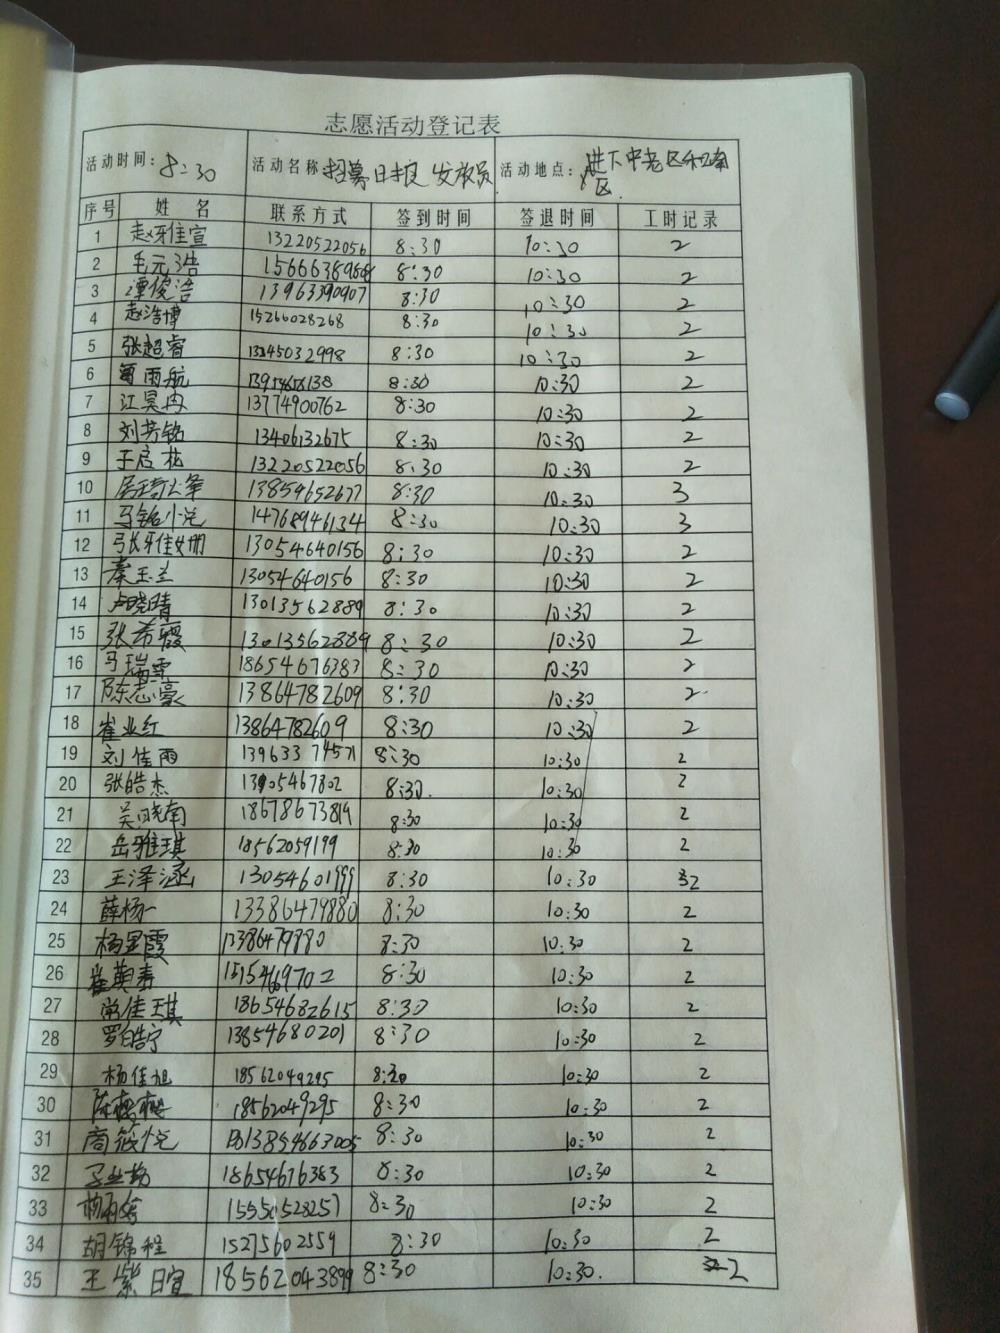 志愿活动登记表
活动时间：8:30 活动名称 招募日报 发放员 活动地点：
区
序号 姓名 联系方式 签到时间 签退时间 工时记录
1 赵雅佳宣 13220522056 8:30 10:30 2
2 毛元浩 8:30 10:30 2
3 谭俊浩 13963390907 8:30 10:30 2
4 赵浩博 15266028268 8:30 10:30 2
5 张超睿 8:30 10:30 2
6 雨航 8:30 10:30 2
7 江昊冉 13774900762 8:30 10:30 2
8 刘芳铭 13406132675 8:30 10:30 2
9 13220522056 8:30 10:30 2
10 13854652677 8:30 10:30 3
11 马铭悦 14768946134 8:30 10:30 3
12 张雅姗 13054640156 8:30 10:30 2
13 秦玉兰 13054640156 8:30 10:30 2
14 卢晓晴 13013562889 8:30 10:30 2
15 张希霞 13013562889 8:30 10:30 2
16 马瑞雪 18654676383 8:30 10:30 2
17 陈志豪 13864782609 8:30 10:30 2
18 崔业红 13864782609 8:30 10:30 2
19 刘佳雨 13963374571 8:30 10:30 2
20 张皓杰 13905467802 8:30. 10:30 2
21 吴晓南 18678673819 8:30 10:30 2
22 岳雅琪 18562059199 8:30 10:30 2
23 王泽涵 13054601999 8:30 10:30 2
24 薛杨一 13386479880 8:30 10:30 2
25 杨霞 13386479880 8:30 10:30 2
26 崔 8:30 10:30 2
27 常佳琪 18654682615 8:30 10:30 2
28 罗皓宁 13854680201 8:30 10:30 2
29 杨佳旭 18562049295 8:30 10:30 2
30 陈 18562049295 8:30 10:30 2
31 商筱悦 13854663005 8:30 10:30 2
32 18654676383 8:30 10:30 2
33 15550528257 8:30 10:30 2
34 胡锦程 15275602559 8:30 10:30 2
35 王紫暄 18562043899 8:30 10:30. 2